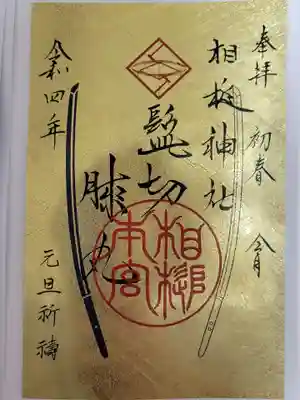 奉拝 初春 令月
相槌神社
髭切
膝丸
相槌
本宮
令和四年 元旦祈禱